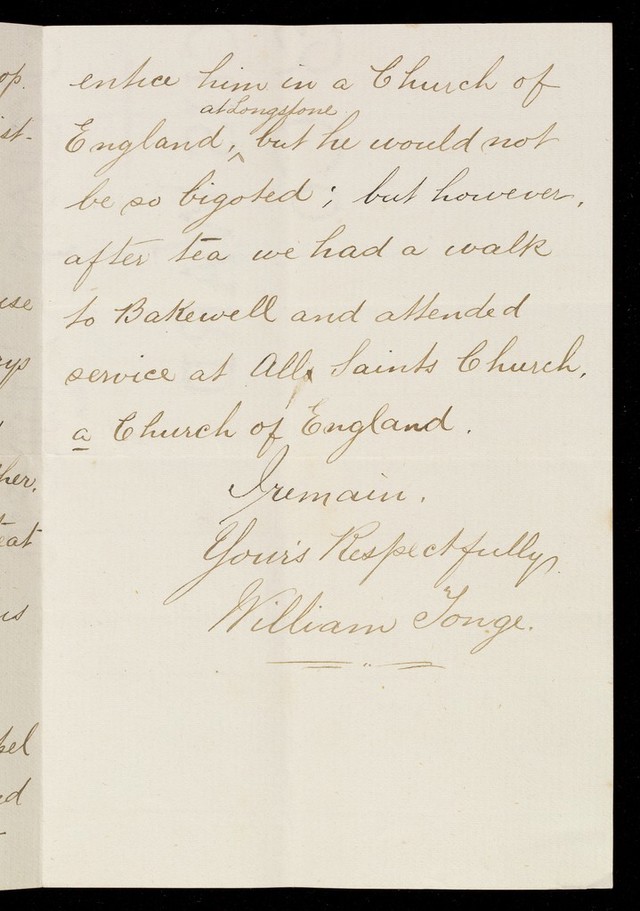 op.
ist-
use
rys
her.
eat
is
pel
nd
entice him in a Church of
at Longstone
England, ^ but he would not
be so bigoted; but however,
after tea we had a walk
to Bakewell and attended
service at All Saints Church,
a Church of England.
I remain.
Your's Respectfully
William Tonge.